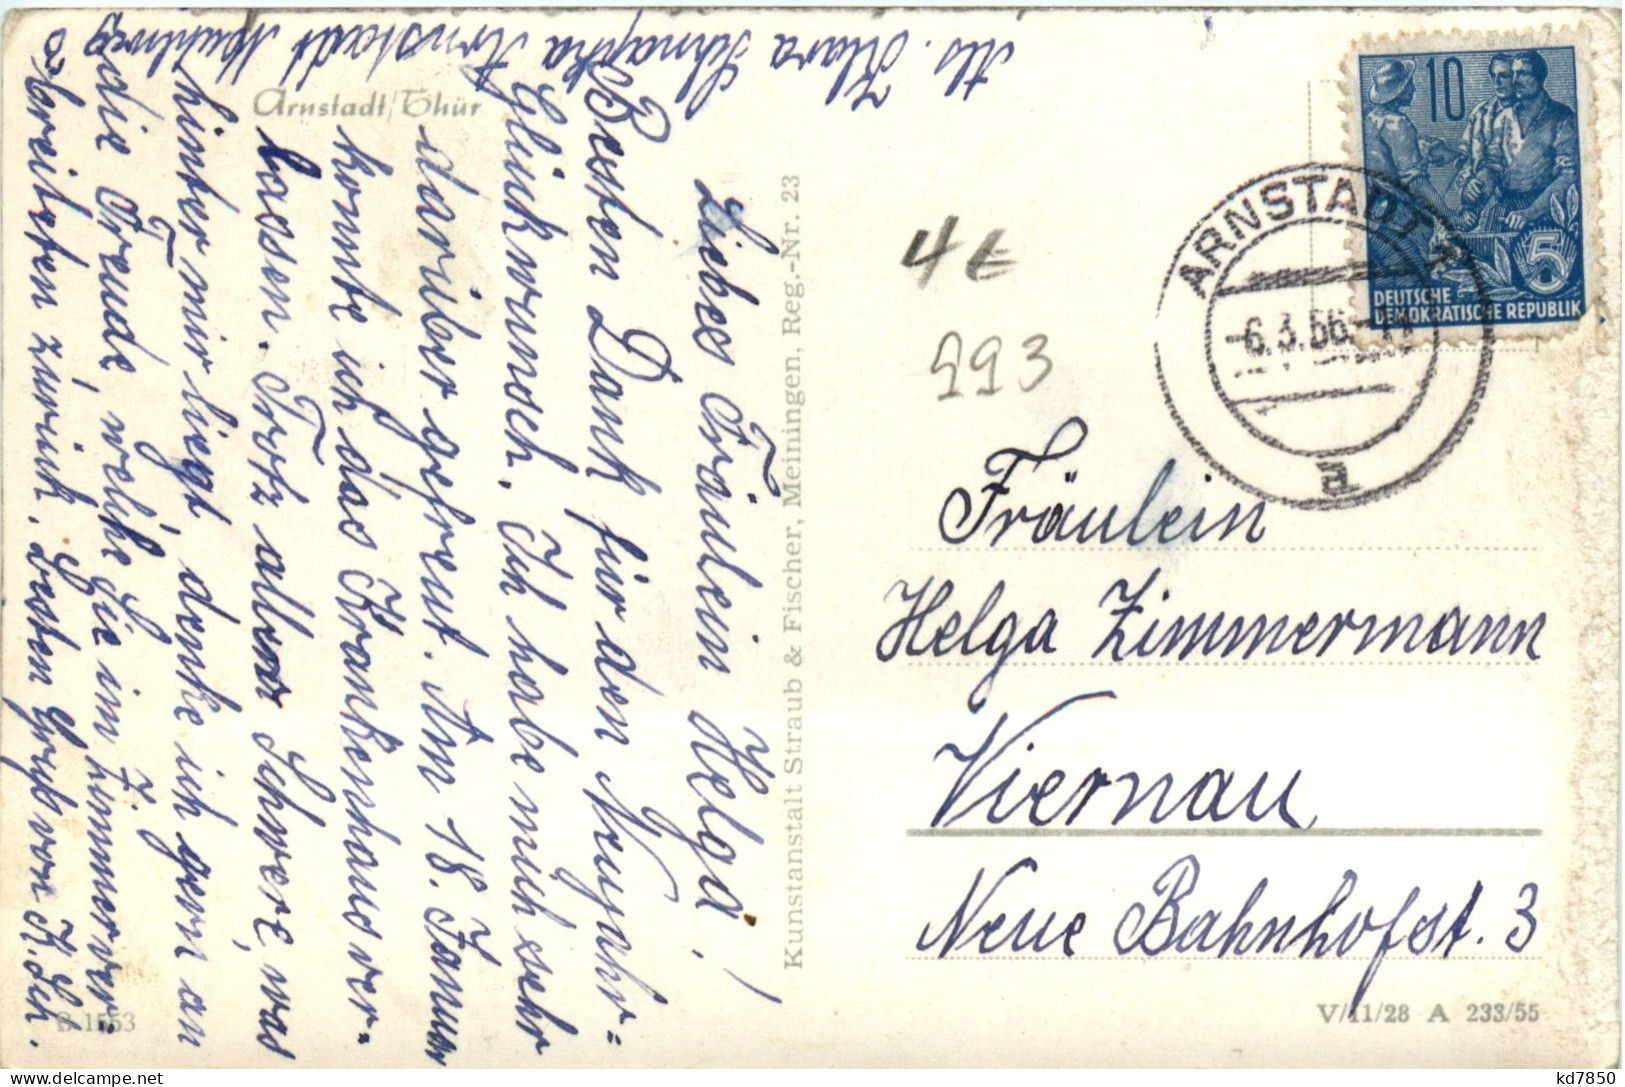 Abs. Klara Schnapka Arnstadt
Arnstadt/Thür
Liebes Fräulein Helga!
Besten Dank für den Neujahr=
Glückwunsch. Ich habe mich sehr
darüber gefreut. Am 18. Januar
konnte ich das Krankenhaus ver=
lassen. Trotz aller Schwere, was
hinter mir liegt, denke ich gern an
die Freude, welche Sie im Zimmer ver=
breiteten zurück. Besten Gruß von K. Sch.
B 1553
Kunstanstalt Straub & Fischer, Meiningen, Reg.-Nr. 23
4€
993
10
5
DEUTSCHE
DEMOKRATISCHE REPUBLIK
ARNSTADT 1
-6.3.56.-
a
Fräulein
Helga Zimmermann
Viernau
Neue Bahnhofst. 3
V/11/28 A 233/55
kd7850